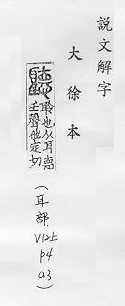 說文解字
大徐本
聽 聆也从耳𢛳
𡈼聲他定切
(耳部
V12上
p4
a3)